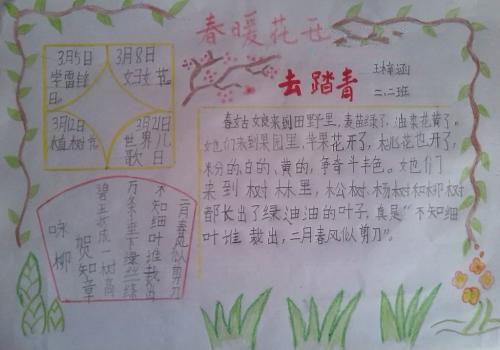 春暖花开
去踏青
王梓涵
二.二班
3月5日
学雷锋
日。
3月8日
妇女节。
3月12日
植树节
3月21日
世界儿
歌日
春姑娘来到田野里,麦苗绿了,油菜花黄了。
她们来到果园里,苹果花开了,桃花也开了,
粉的、白的、黄的,争奇斗卡色。她们
来到树林里,松树、杨树和柳树
都长出了绿油油的叶子,真是“不知细
叶谁裁出,二月春风似剪刀”。
咏柳
贺知章
碧玉妆成一树高
万条垂下绿丝绦
不知细叶谁裁出
二月春风似剪刀